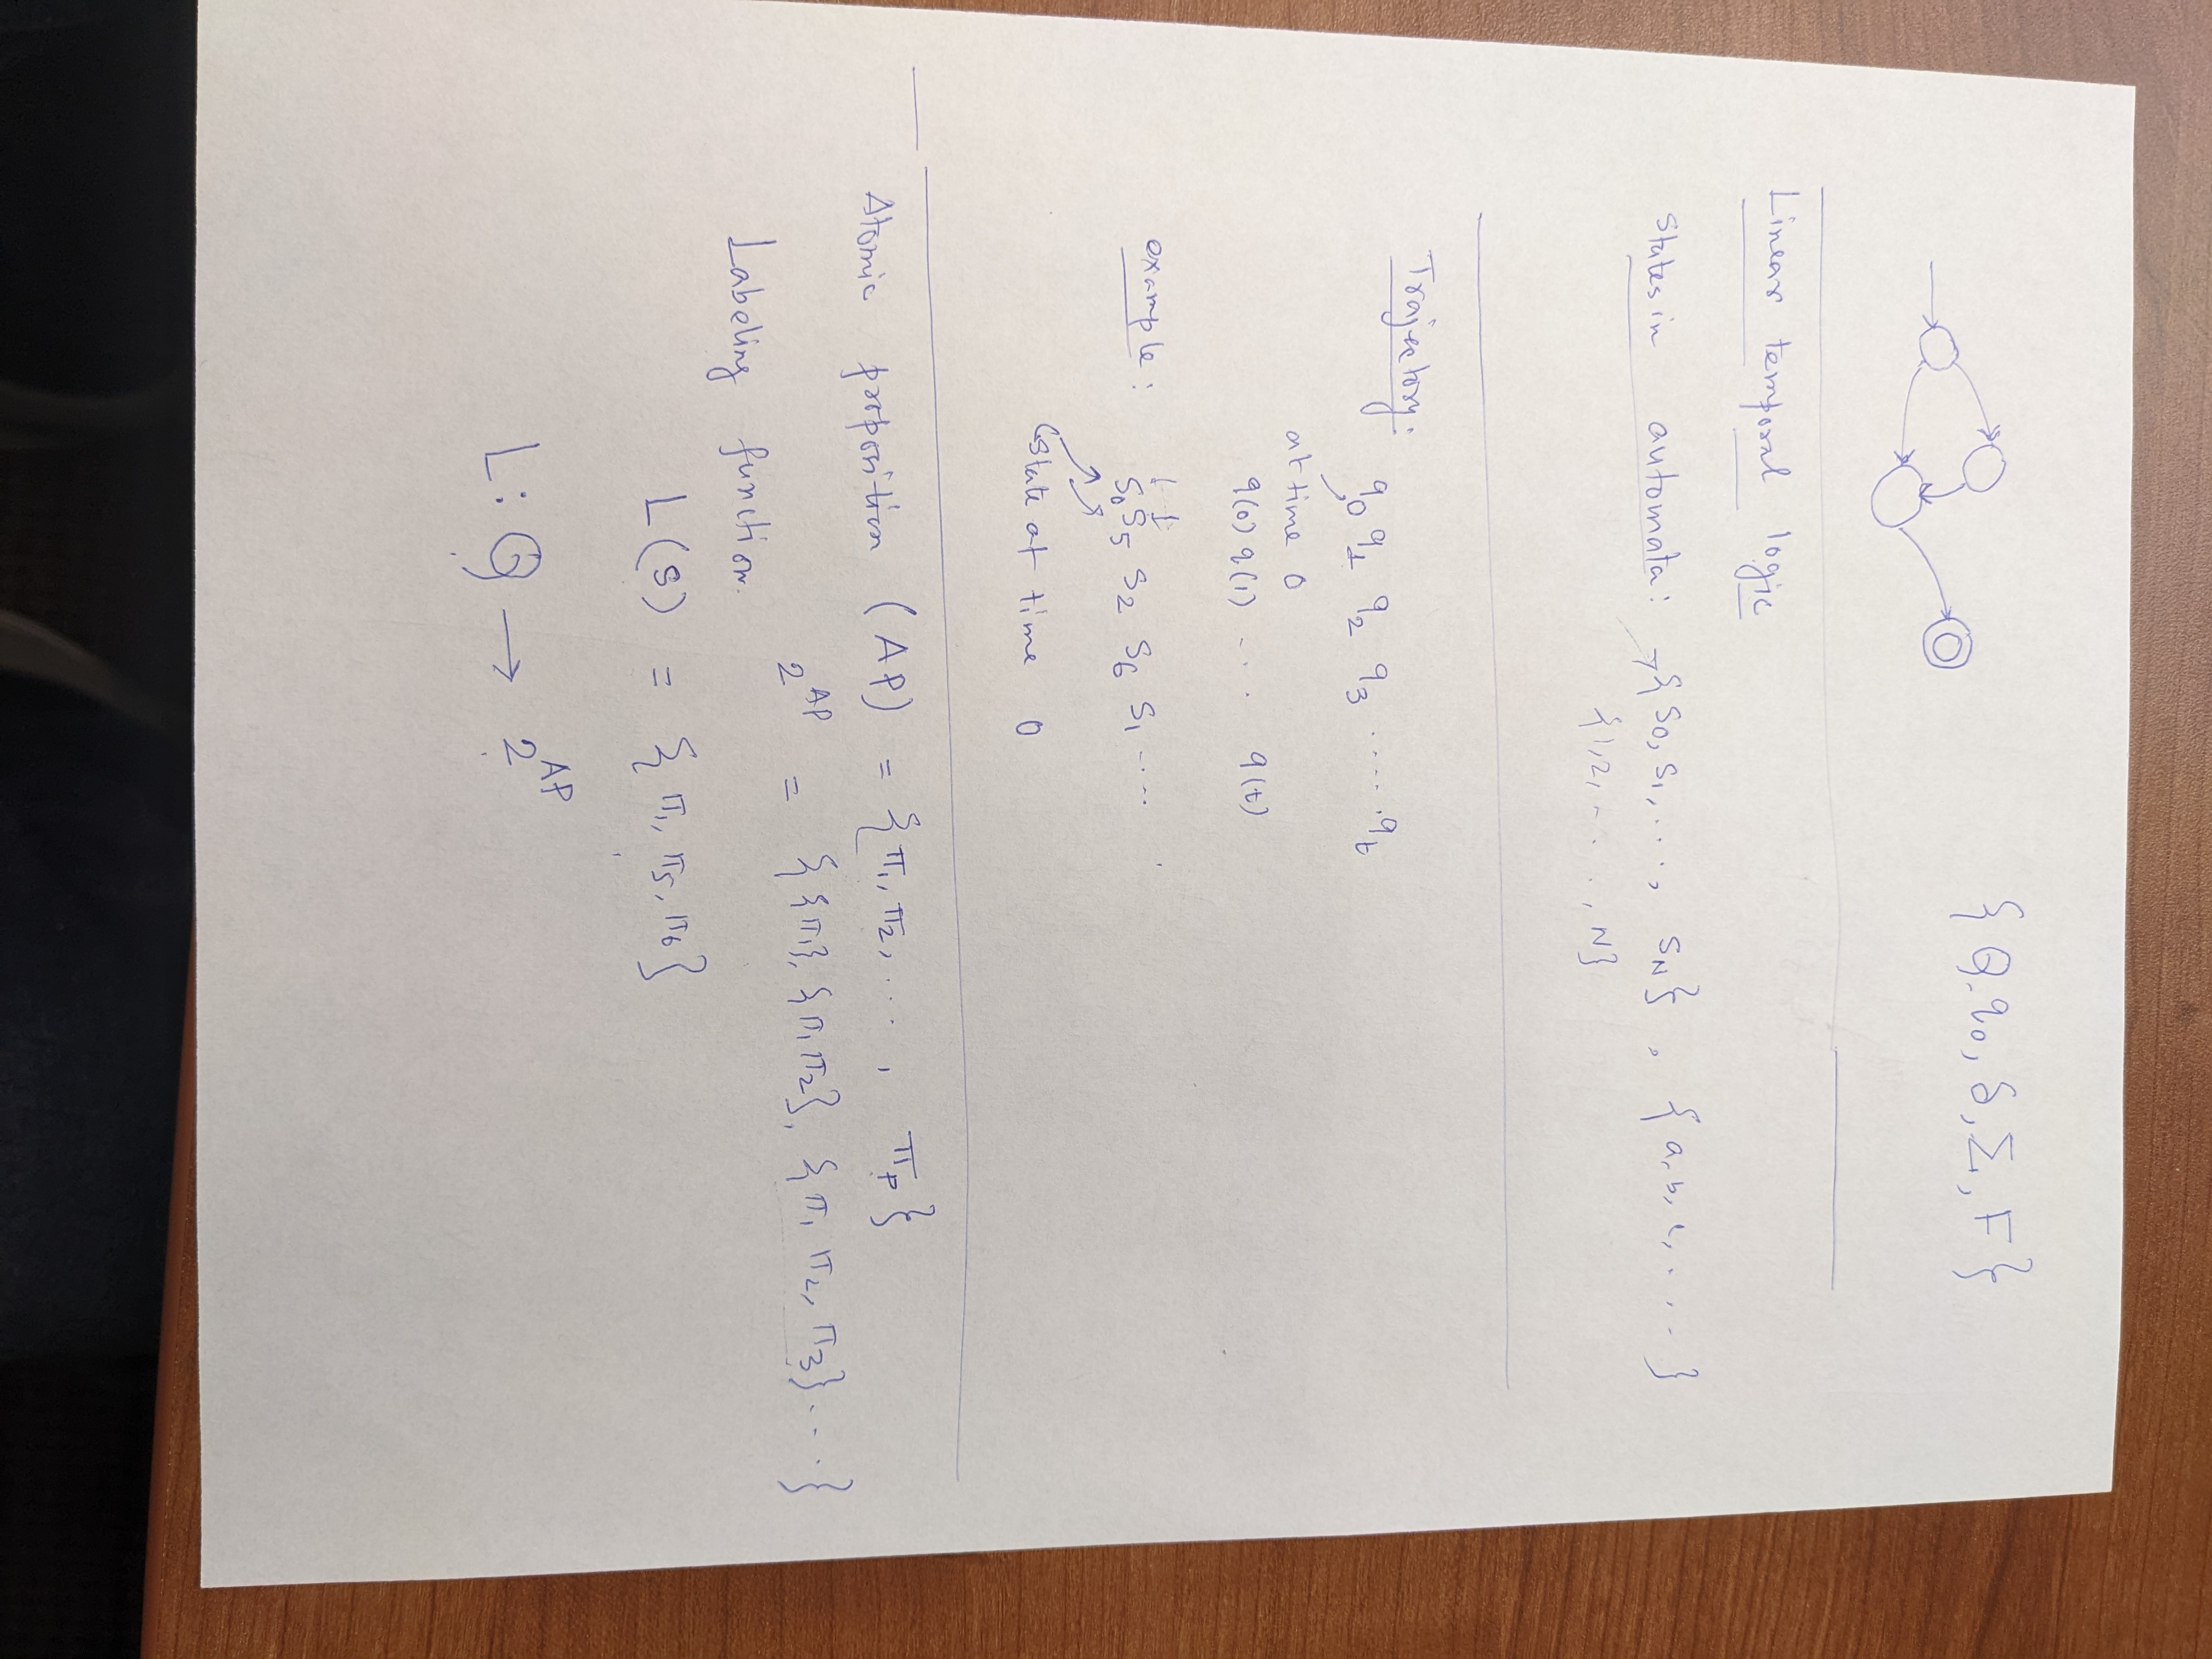 {Q, q0, δ, Σ, F}
Linear temporal logic
States in automata: → {S0, S1, ...., SN} , {a, b, c, ....}
{1, 2, ...., N}
Trajectory: q0 q1 q2 q3 ..... qt
at time 0
q(0) q(1) ... q(t)
example: S0 S5 S2 S6 S1 .....
State at time 0
Atomic proposition (AP) = {π1, π2, ...., πp}
2^AP = {{π1}, {π1 π2}, {π1 π2, π3} ...}
Labeling function.
L(s) = {π1, π5, π6}
L: Q → 2^AP